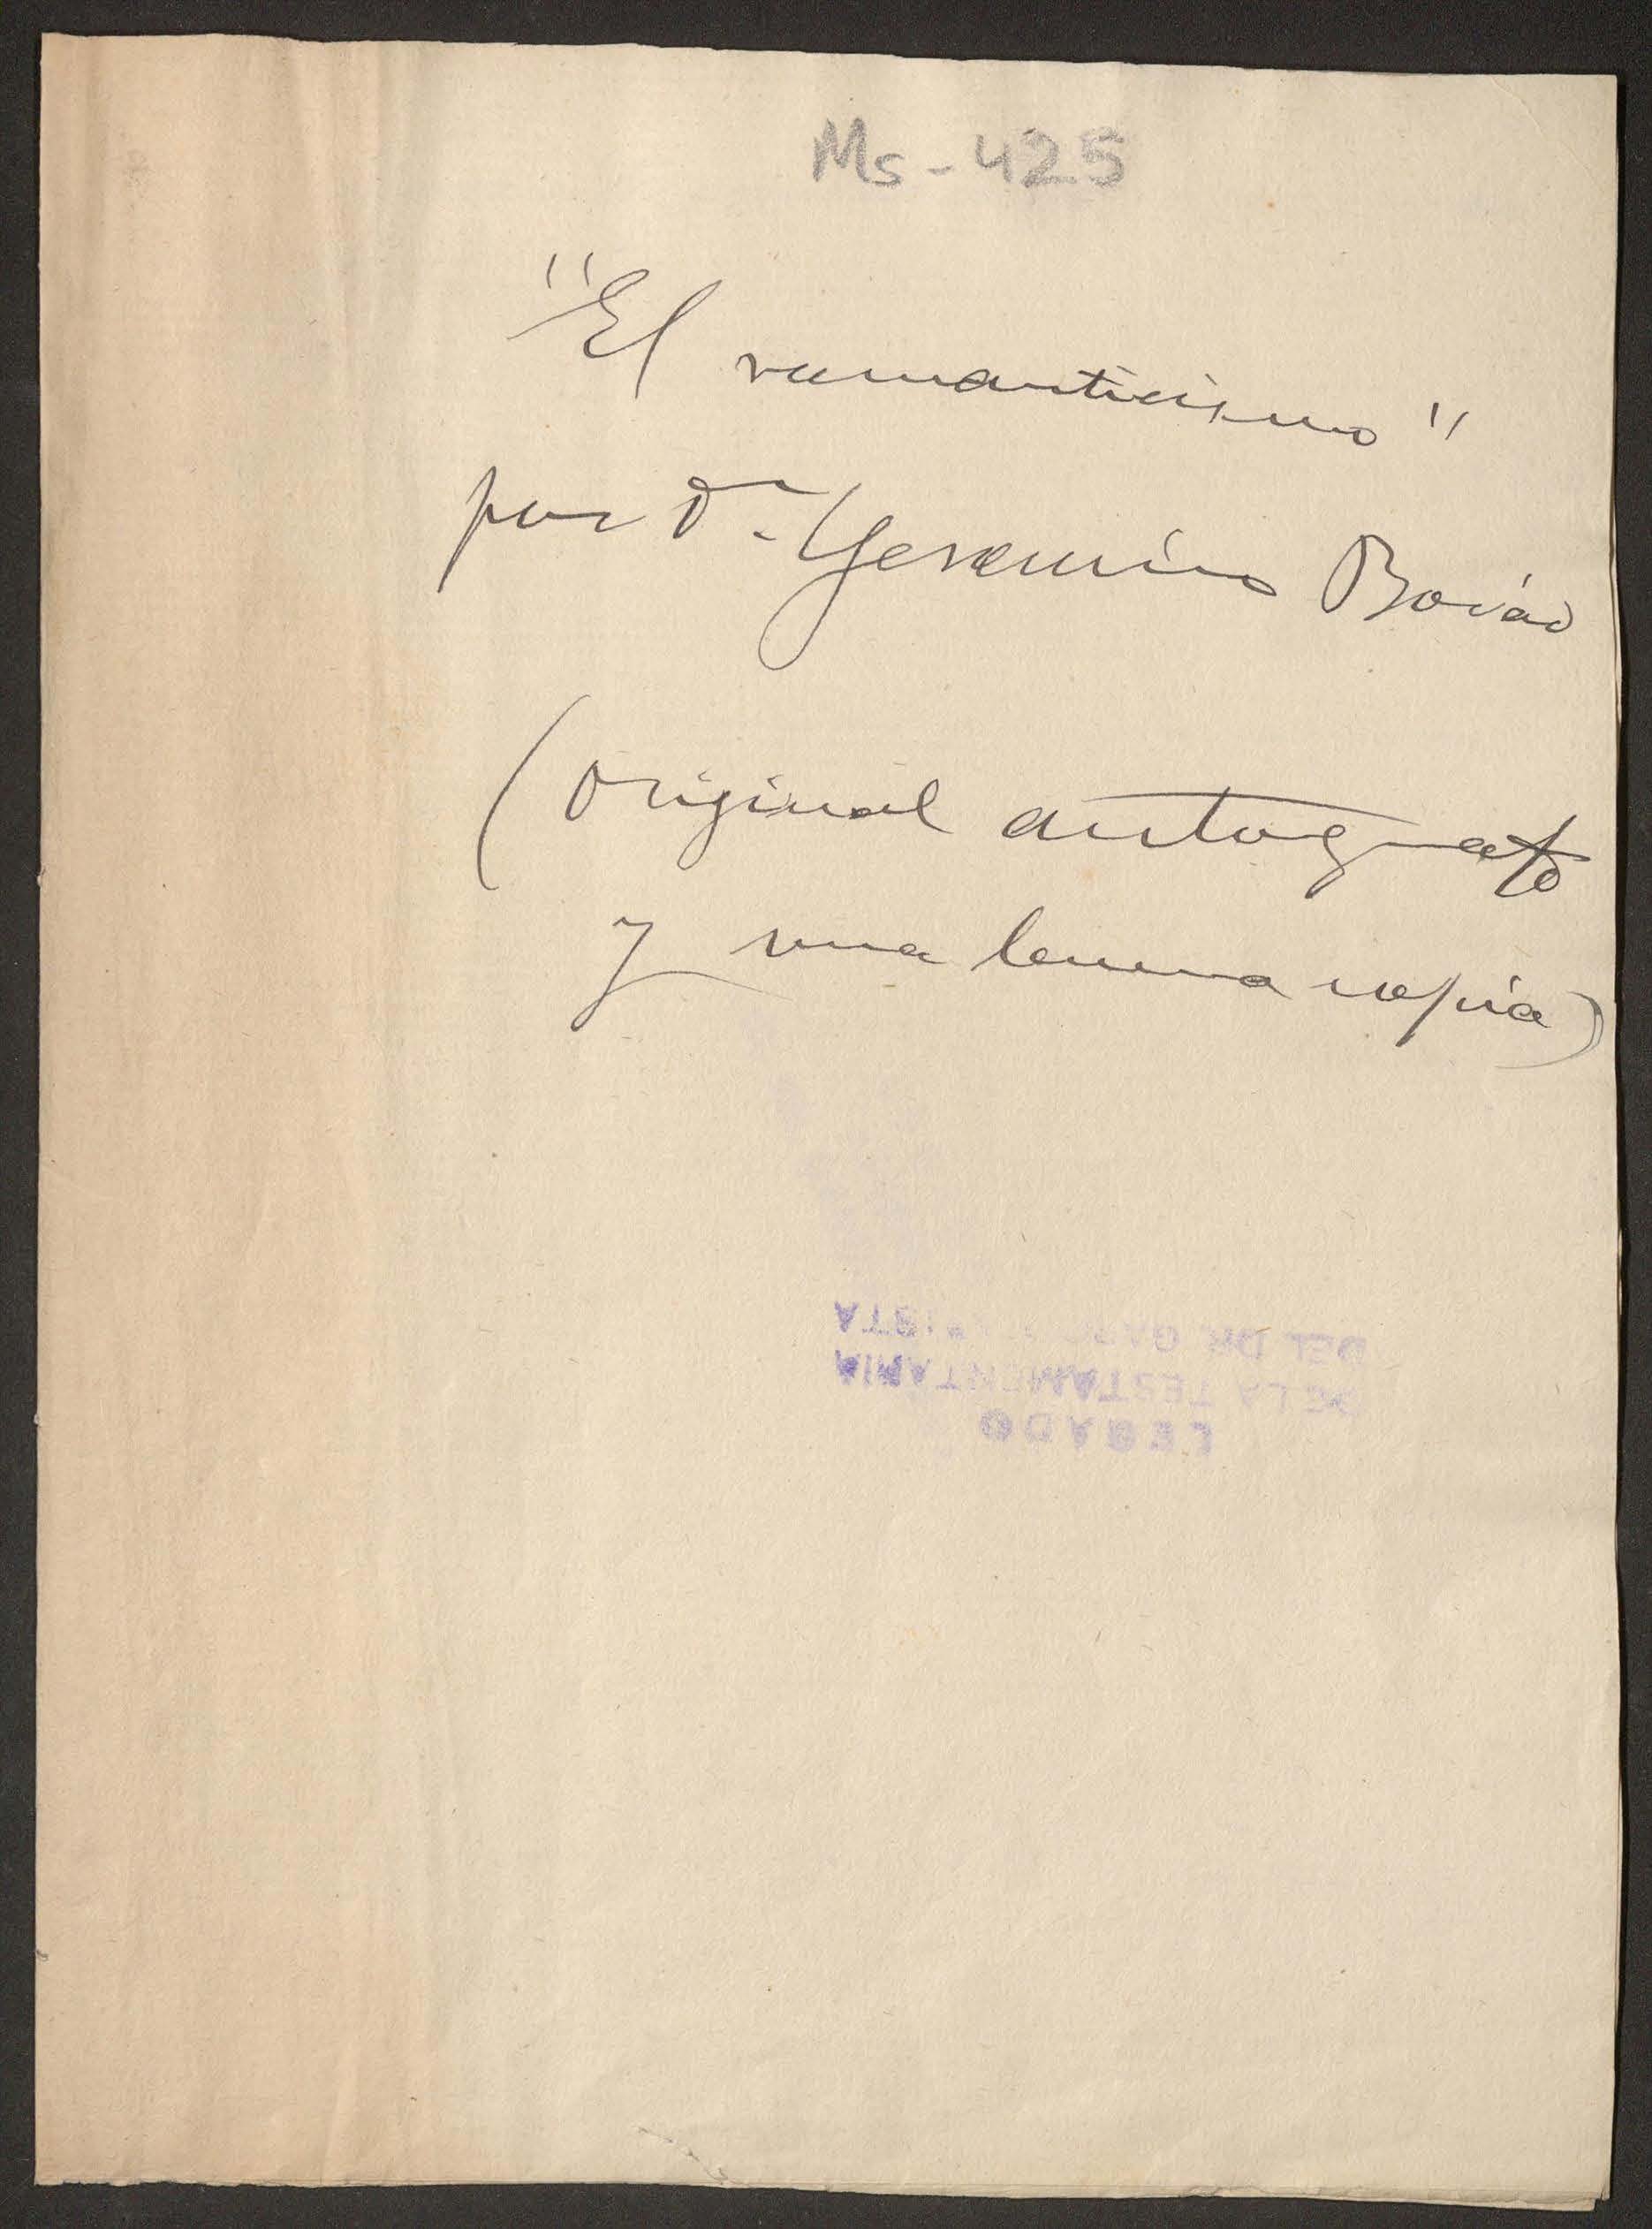 Ms-425
"El romanticismo"
por Dn. Geronimo Boráo
(original autografo
y una buena copia)
LEGADO
DE LA TESTAMENTARIA
DEL DR